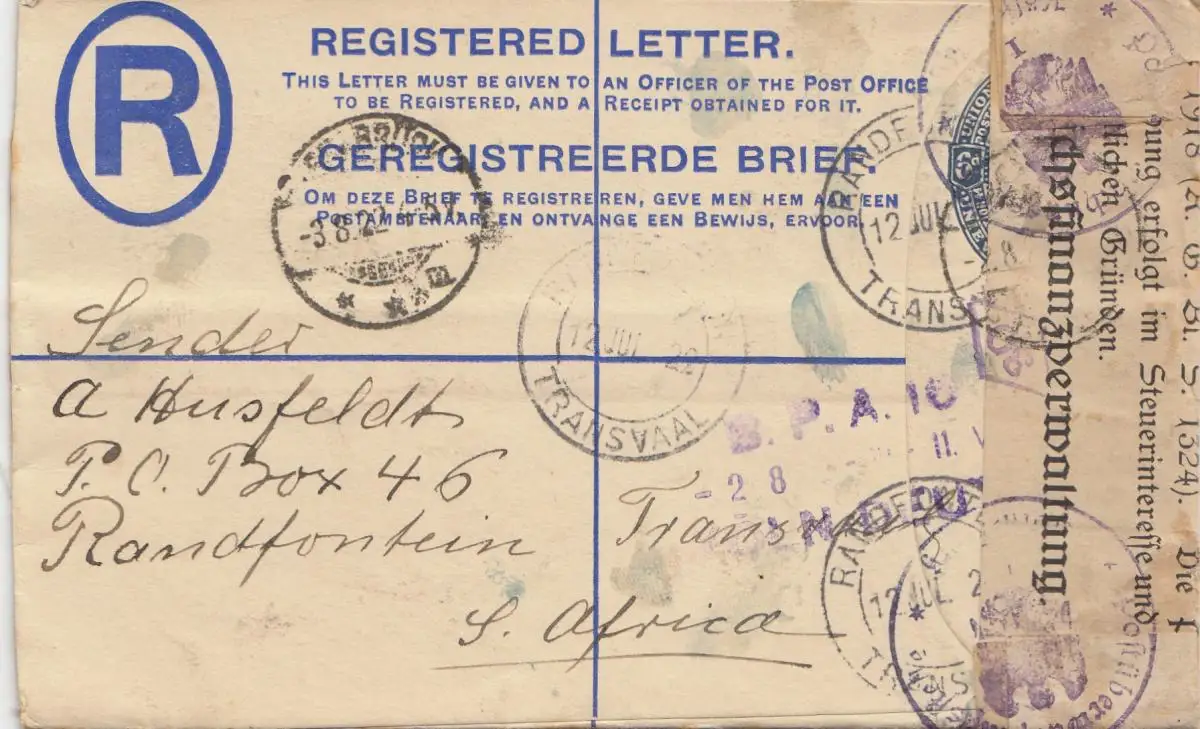 R
REGISTERED LETTER.
THIS LETTER MUST BE GIVEN TO AN OFFICER OF THE POST OFFICE
TO BE REGISTERED, AND A RECEIPT OBTAINED FOR IT.
GEREGISTREERDE BRIEF.
OM DEZE BRIEF TE REGISTREREN, GEVE MEN HEM AAN EEN
POSTAMBTENAAR, EN ONTVANGE EEN BEWIJS, ERVOOR.
-3.8.22
Sender
A Husfeldt
P.O. Box 46
Randfontein Transvaal
S. Africa
12 JUL 22
TRANSVAAL
RANDF
12 JUL
TRANS
B.P.A. 10
-2 8
RANDFONT
12 JUL 2
TRANS
UNION
POST
1918 (R. G. Bl. S. 1324). Die
ung erfolgt im Steuerinteresse und
lichen Gründen.
chsfinanzverwaltung.